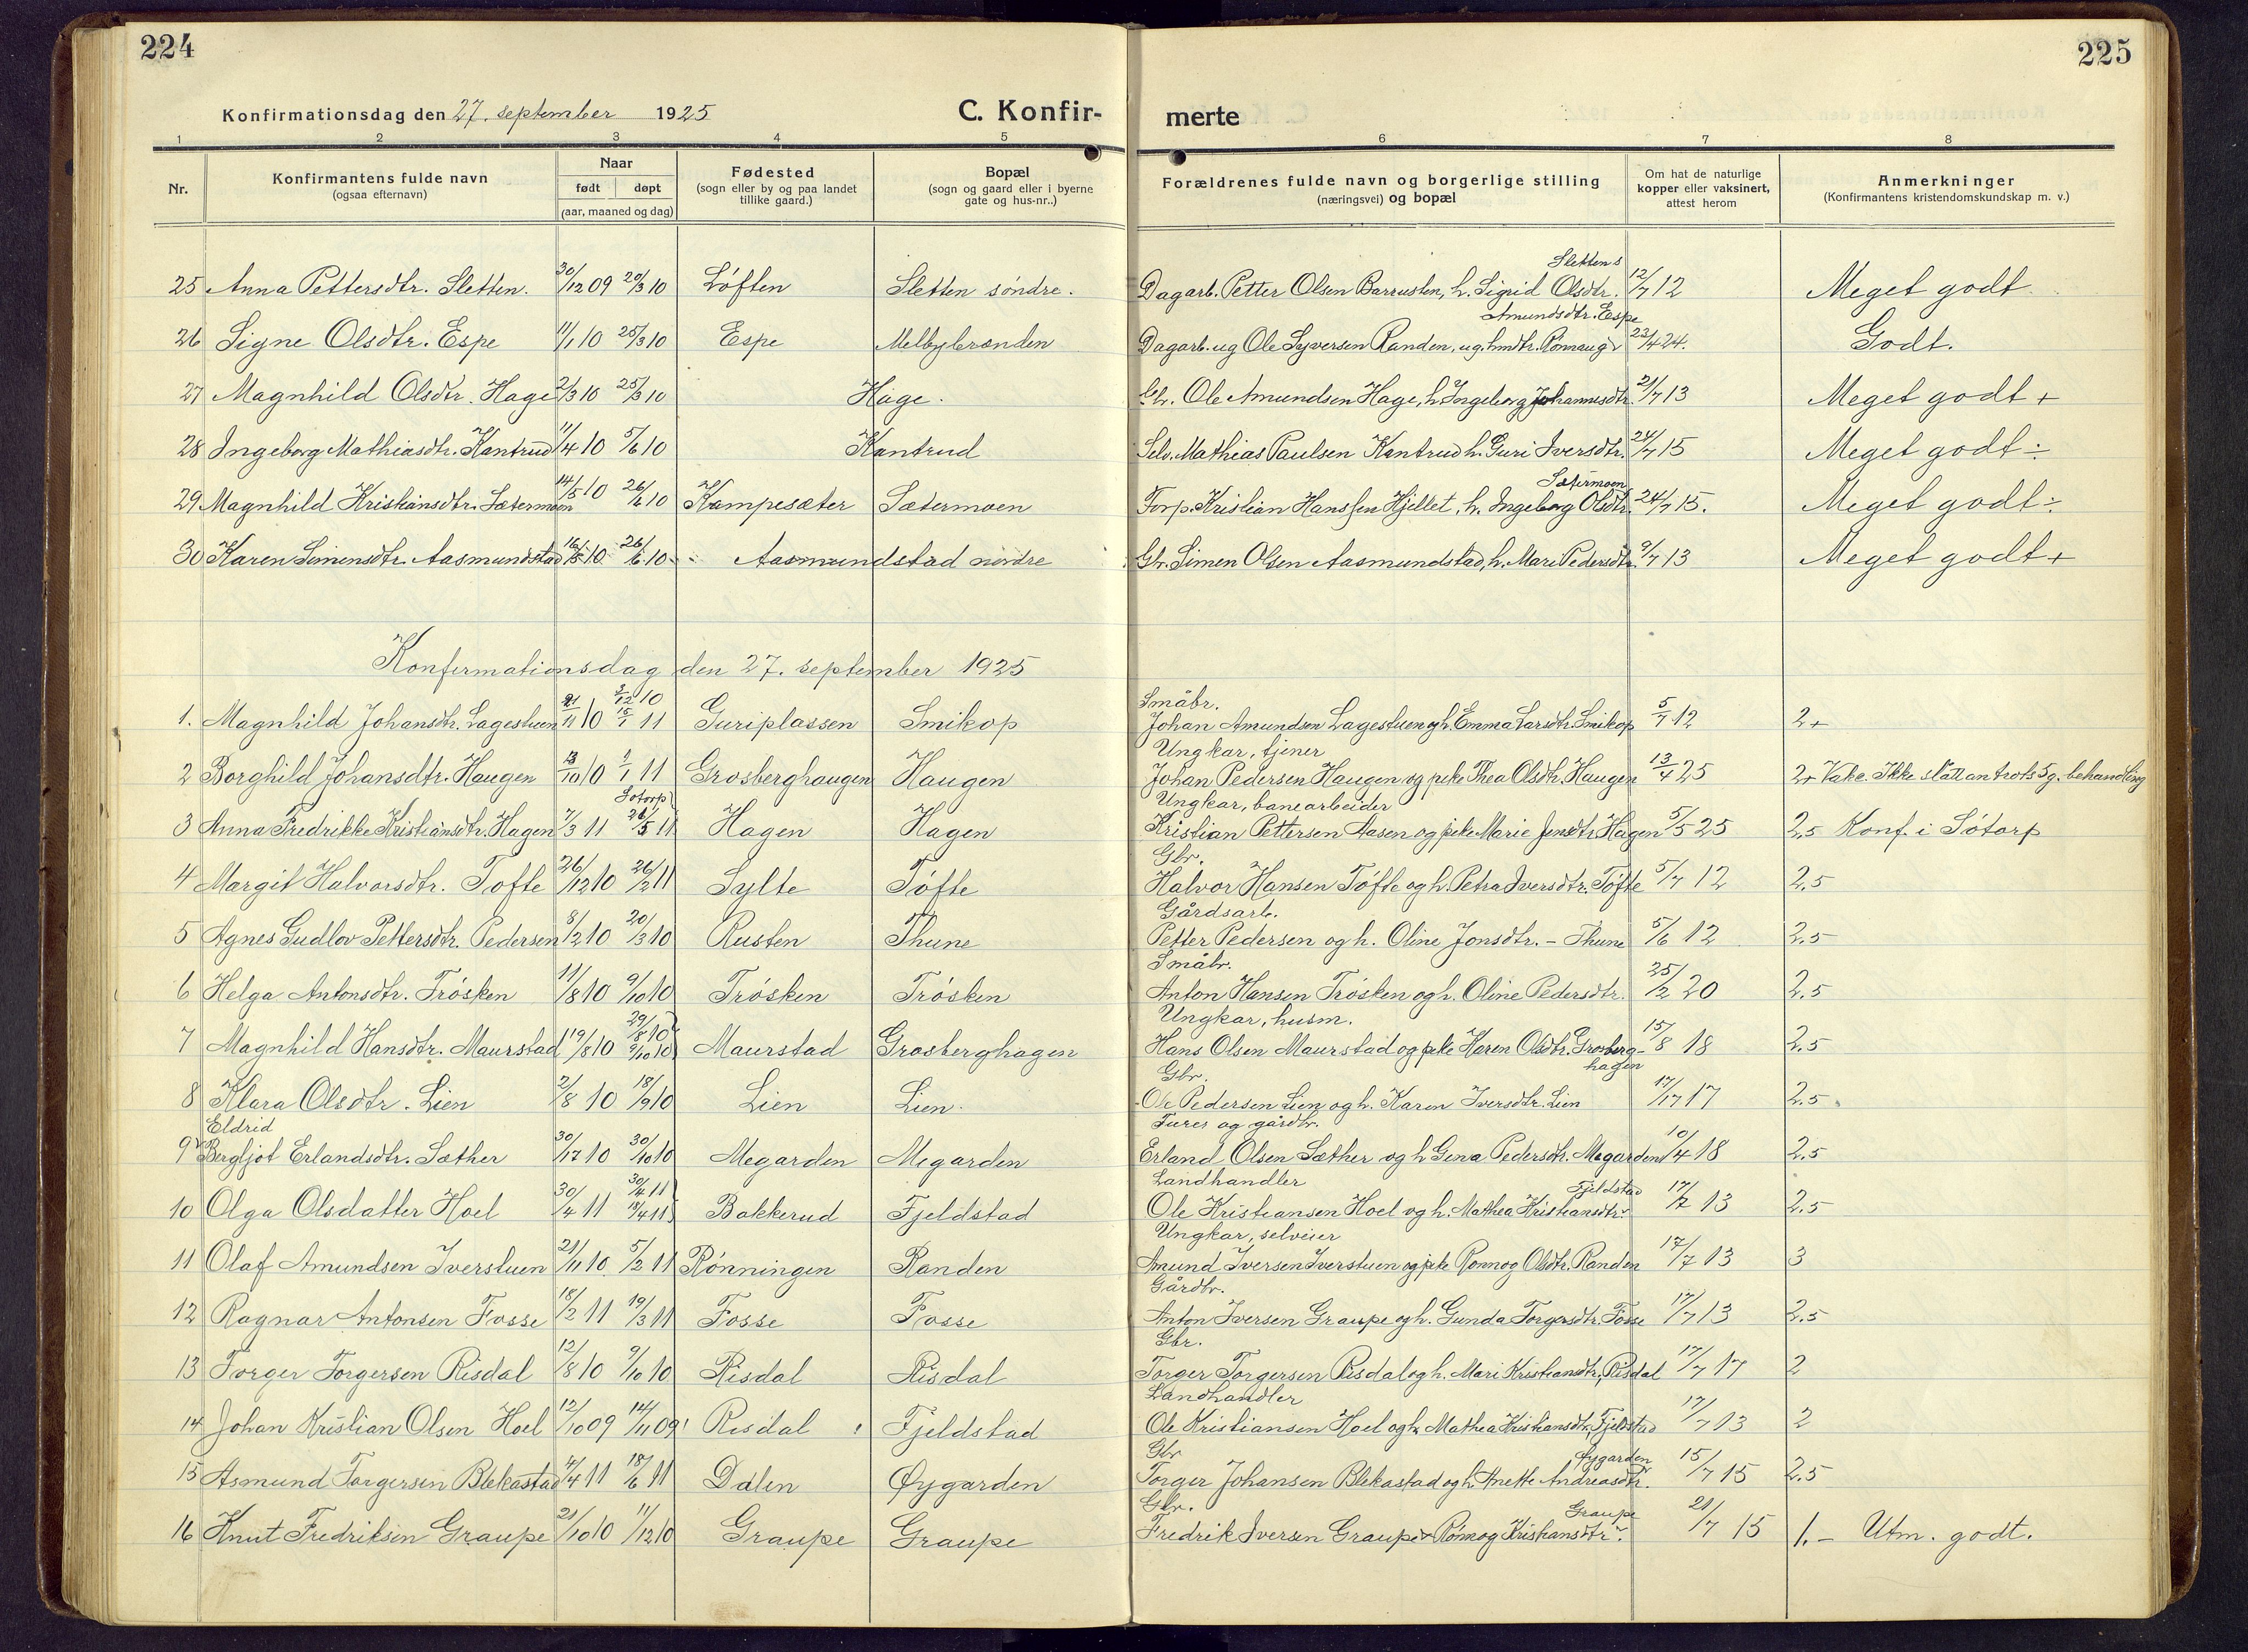 224
225
Konfirmationsdag den 27. september 1925
C. Konfir-
merte
1 2 3 4 5 6 7 8
Nr.
Konfirmantens fulde navn
(ogsaa efternavn)
Naar
født døpt
(aar, maaned og dag)
Fødested
(sogn eller by og paa landet
tillike gaard.)
Bopæl
(sogn og gaard eller i byerne
gate og hus-nr..)
Forældrenes fulde navn og borgerlige stilling
(næringsvei) og bopæl
Om hat de naturlige
kopper eller vaksinert,
attest herom
Anmerkninger
(Konfirmantens kristendomskundskap m. v.)
Slettens
25 Anna Pettersdtr. Sletten. 30/12 09 20/3 10 Løften Sletten søndre. Dagarb. Petter Olsen Barrusten, h. Sigrid Olsdtr. 12/7 12 Meget godt
Amundsdtr. Espe
26 Signe Olsdtr. Espe 11/1 10 25/3 10 Espe Melbybrænden Dagarb. ug Ole Syversen Randen, ug. hmdtr. Rønnaug 23/4 24. Godt.
27 Magnhild Olsdtr. Hage 2/3 10 25/3 10 Hage. Gbr. Ole Amundsen Hage, h. Ingeborg Johannesdtr. 21/7 13 Meget godt +
28 Ingeborg Mathiasdtr. Kantrud 11/4 10 5/6 10 Kantrud Selv. Mathias Paulsen Kantrud h. Guri Iversdtr. 24/7 15 Meget godt ÷
Sætermoen
29 Magnhild Kristiansdtr. Sætermoen 14/5 10 26/6 10 Kampesæter Sætermoen Torp. Kristian Hanssen Hjellet, h. Ingeborg Olsdtr. 24/7 15. Meget godt ÷
30 Karen Simensdtr. Aasmundstad 16/5 10 26/6 10 Aasmundstad nordre Gbr. Simen Olsen Aasmundstad, h. Mari Pedersdtr. 9/7 13 Meget godt +
Konfirmationsdag den 27. september 1925
3/12 10 Småbr.
1. Magnhild Johansdtr. Lagestuen 21/11 10 15/1 11 Guriplassen Smikop Johan Amundsen Lagestuen og h. Emma Larsdtr. Smikop 5/7 12 2+
Ungkar, tjener
2 Borghild Johansdtr. Haugen 13/10 10 1/1 11 Grosberghaugen Haugen Johan Pedersen Haugen og pike Thea Olsdtr. Haugen 13/4 25 2+ Vake. Ikke slått an trots 5 g. behandling
Søtorp Ungkar, banearbeider
3 Anna Fredrikke Kristiansdtr. Hagen 7/3 11 21/5 11 Hagen Hagen Kristian Pettersen Aasen og pike Marie Jensdtr. Hagen 5/5 25 2,5 Konf. i Søtorp
Gbr.
4 Margit Halvorsdtr. Tøfte 26/12 10 26/2 11 Sylte Tøfte Halvor Hansen Tøfte og h. Petra Iversdtr. Tøfte 5/7 12 2,5
Gårdsarb.
5 Agnes Gudlov Pettersdtr. Pedersen 8/2 10 20/3 10 Rusten Thune Petter Pedersen og h. Oline Jonsdtr. – Thune 5/6 12 2,5
Småbr.
6 Helga Antonsdtr. Trøsken 11/8 10 9/10 10 Trøsken Trøsken Anton Hansen Trøsken og h. Oline Pedersdtr. 25/2 20 2,5
29/8 10 Ungkar, husm.
7 Magnhild Hansdtr. Maurstad 19/8 10 9/10 10 Maurstad Grosberghagen Hans Olsen Maurstad og pike Karen Olsdtr. Grosberg- 15/8 18 2,5
hagen
Gbr.
8 Klara Olsdtr. Lien 2/8 10 18/9 10 Lien Lien. Ole Pedersen Lien og h. Karen Iversdtr. Lien 17/7 17 2,5
Eldrid Furer og gårdbr.
9 Bergljot Erlandsdtr. Sæther 30/7 10 30/10 10 Megarden Megarden Erland Olsen Sæther og h Gena Pedersdtr. Megarden 10/4 18 2,5
30/4 11 Landhandler Fjeldstad
10 Olga Olsdatter Hoel 30/4 11 13/4 11 Bakkerud Fjeldstad Ole Kristiansen Hoel og h. Mathea Kristiansdtr. 17/7 13 2,5
Ungkar, selveier
11 Olaf Amundsen Iverstuen 21/11 10 5/2 11 Rønningen Randen Amund Iversen Iverstuen og pike Rønnog Olsdtr. Randen 17/7 13 3
Gårdbr.
12 Ragnar Antonsen Fosse 18/2 11 19/3 11 Fosse Fosse Anton Iversen Graupe og h. Gunda Torgersdtr. Fosse 17/7 13 2,5
Gbr.
13 Torger Torgersen Risdal 12/8 10 9/10 10 Risdal Risdal Torger Torgersen Risdal og h. Mari Kristiansdtr., Risdal 17/7 17 2
Landhandler
14 Johan Kristian Olsen Hoel 12/10 09 14/11 09 Risdal Fjeldstad Ole Kristiansen Hoel og h. Mathea Kristiansdtr., Fjeldstad 17/7 13 2
Gbr Øygarden
15 Asmund Torgersen Blekastad 4/4 11 18/6 11 Dalen Øygarden Torger Johansen Blekastad og h. Anette Andreasdtr. 15/7 15 2,5
Gbr. Graupe
16 Knut Fredriksen Graupe 21/10 10 11/12 10 Graupe Graupe Fredrik Iversen Graupe Rønnog Kristiansdtr. 21/7 15 1. – Utm. godt.